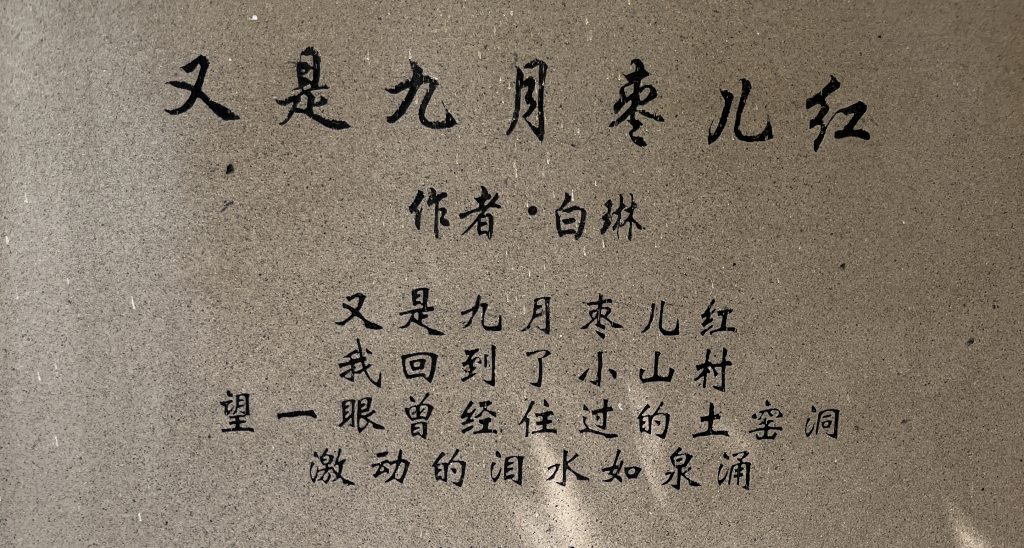 又是九月枣儿红
作者·白琳
又是九月枣儿红
我回到了小山村
望一眼曾经住过的土窑洞
激动的泪水如泉涌